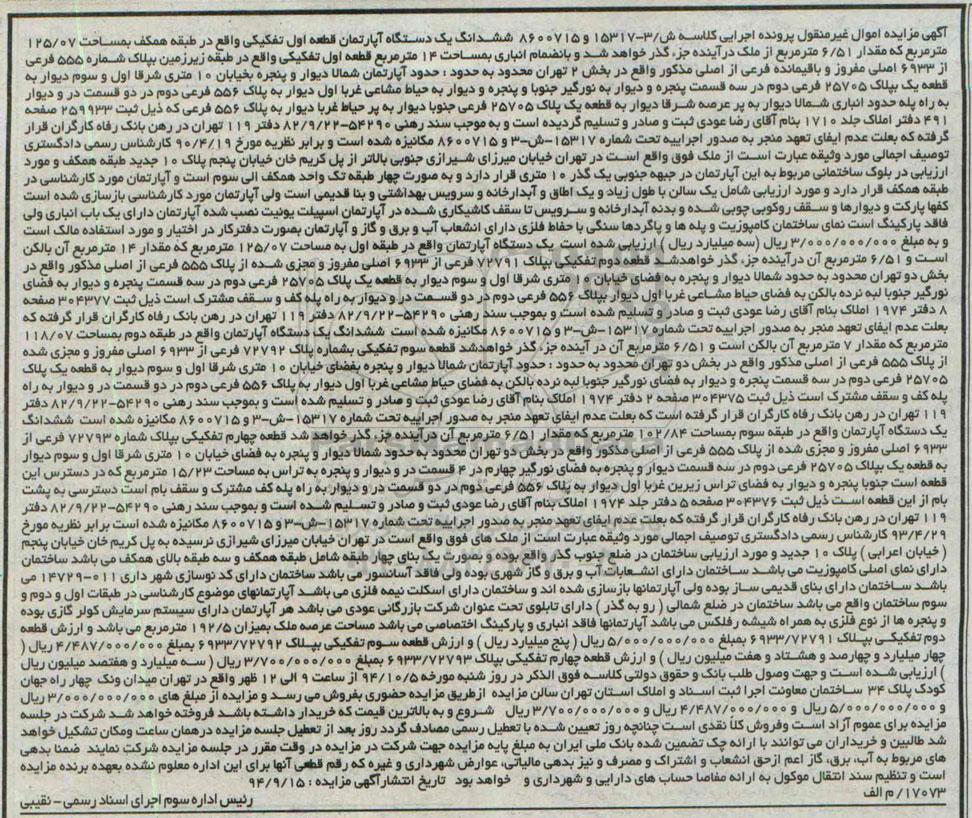 آگهی مزایده اموال غیرمنقول پرونده اجرایی کلاسه ش/۳-۱۵۳۱۷ و ۸۶۰۰۷۱۵ ششدانگ یک دستگاه آپارتمان قطعه اول تفکیکی واقع در طبقه همکف بمساحت ۱۲۵/۰۷
مترمربع که مقدار ۶/۵۱ مترمربع از ملک درآینده جزء گذر خواهد شد و بانضمام انباری بمساحت ۱۴ مترمربع قطعه اول تفکیکی واقع در طبقه زیرزمین بپلاک شماره ۵۵۵ فرعی
از ۶۹۳۳ اصلی مفروز و باقیمانده فرعی از اصلی مذکور واقع در بخش ۲ تهران محدود به حدود : حدود آپارتمان شمالا دیوار و پنجره بخیابان ۱۰ متری شرقا اول و سوم دیوار به
قطعه یک بپلاک ۲۵۷۰۵ فرعی دوم در سه قسمت پنجره و دیوار به نورگیر جنوبا و پنجره و دیوار به حیاط مشاعی غربا اول دیوار به پلاک ۵۵۶ فرعی دوم در دو قسمت در و دیوار
به راه پله حدود انباری شمالا دیوار به پر عرصه شرقا دیوار به قطعه یک پلاک ۲۵۷۰۵ فرعی جنوبا دیوار به پر حیاط غربا دیوار به پلاک ۵۵۶ فرعی که ذیل ثبت ۲۵۹۹۳۳ صفحه
۴۹۱ دفتر املاک جلد ۱۷۱۰ بنام آقای رضا عودی ثبت و صادر و تسلیم گردیده است و به موجب سند رهنی ۵۴۲۹۰-۸۲/۹/۲۲ دفتر ۱۱۹ تهران در رهن بانک رفاه کارگران قرار
گرفته که بعلت عدم ایفای تعهد منجر به صدور اجراییه تحت شماره ۱۵۳۱۷-ش-۳ و ۸۶۰۰۷۱۵ مکانیزه شده است و برابر نظریه مورخ ۹۰/۴/۱۹ کارشناس رسمی دادگستری
توصیف اجمالی مورد وثیقه عبارت است از ملک فوق واقع است در تهران خیابان میرزای شیرازی جنوبی بالاتر از پل کریم خان خیابان پنجم پلاک ۱۰ جدید طبقه همکف و مورد
ارزیابی در بلوک ساختمانی مربوط به این آپارتمان در جبهه جنوبی یک گذر ۱۰ متری قرار دارد و به صورت چهار طبقه تک واحد همکف الی سوم است و آپارتمان مورد کارشناسی در
طبقه همکف قرار دارد و مورد ارزیابی شامل یک سالن با طول زیاد و یک اطاق و آبدارخانه و سرویس بهداشتی و بنا قدیمی است ولی آپارتمان مورد کارشناسی بازسازی شده است
کفها پارکت و دیوارها و سقف روکوبی چوبی شده و بدنه آبدارخانه و سرویس تا سقف کاشیکاری شده در آپارتمان اسپیلت یونیت نصب شده آپارتمان دارای یک باب انباری ولی
فاقد پارکینگ است نمای ساختمان کامپوزیت و پله ها و پاگردها سنگی با حفاظ فلزی دارای انشعاب آب و برق و گاز و آپارتمان بصورت دفترکار در اختیار و مورد استفاده مالک است
و به مبلغ ۳/۰۰۰/۰۰۰/۰۰۰ ریال (سه میلیارد ریال ) ارزیابی شده است یک دستگاه آپارتمان واقع در طبقه اول به مساحت ۱۲۵/۰۷ مترمربع که مقدار ۱۴ مترمربع آن بالکن
است و ۶/۵۱ مترمربع آن درآینده جزء گذر خواهدشد قطعه دوم تفکیکی بپلاک ۷۲۷۹۱ فرعی از ۶۹۳۳ اصلی مفروز و مجزی شده از پلاک ۵۵۵ فرعی از اصلی مذکور واقع در
بخش دو تهران محدود به حدود شمالا دیوار و پنجره به فضای خیابان ۱۰ متری شرقا اول و سوم دیوار به قطعه یک پلاک ۲۵۷۰۵ فرعی دوم در سه قسمت پنجره و دیوار به فضای
نورگیر جنوبا لبه نرده بالکن به فضای حیاط مشاعی غربا اول دیوار بپلاک ۵۵۶ فرعی دوم در دو قسمت در و دیوار به راه پله کف و سقف مشترک است ذیل ثبت ۳۰۴۳۷۷ صفحه
۸ دفتر ۱۹۷۴ املاک بنام آقای رضا عودی ثبت و صادر و تسلیم شده است و بموجب سند رهنی ۵۴۲۹۰-۸۲/۹/۲۲ دفتر ۱۱۹ تهران در رهن بانک رفاه کارگران قرار گرفته که
بعلت عدم ایفای تعهد منجر به صدور اجراییه تحت شماره ۱۵۳۱۷-ش-۳ و ۸۶۰۰۷۱۵ مکانیزه شده است ششدانگ یک دستگاه آپارتمان واقع در طبقه دوم بمساحت ۱۱۸/۰۷
مترمربع که مقدار ۷ مترمربع آن بالکن است و ۶/۵۱ مترمربع آن در آینده جزء گذر خواهدشد قطعه سوم تفکیکی بشماره پلاک ۷۲۷۹۲ فرعی از ۶۹۳۳ اصلی مفروز و مجزی شده
از پلاک ۵۵۵ فرعی از اصلی مذکور واقع در بخش دو تهران محدود به حدود : حدود آپارتمان شمالا دیوار و پنجره بفضای خیابان ۱۰ متری شرقا اول و سوم دیوار به قطعه یک پلاک
۲۵۷۰۵ فرعی دوم در سه قسمت پنجره و دیوار به فضای نورگیر جنوبا لبه نرده بالکن به فضای حیاط مشاعی غربا اول دیوار به پلاک ۵۵۶ فرعی دوم در دو قسمت در و دیوار به راه
پله کف و سقف مشترک است ذیل ثبت ۳۰۴۳۷۵ صفحه ۲ دفتر ۱۹۷۴ املاک بنام آقای رضا عودی ثبت و صادر و تسلیم شده است و بموجب سند رهنی ۵۴۲۹۰-۸۲/۹/۲۲ دفتر
۱۱۹ تهران در رهن بانک رفاه کارگران قرار گرفته است که بعلت عدم ایفای تعهد منجر به صدور اجراییه تحت شماره ۱۵۳۱۷-ش-۳ و ۸۶۰۰۷۱۵ مکانیزه شده است ششدانگ
یک دستگاه آپارتمان واقع در طبقه سوم بمساحت ۱۰۲/۸۴ مترمربع که مقدار ۶/۵۱ مترمربع آن درآینده جزء گذر خواهد شد قطعه چهارم تفکیکی بپلاک شماره ۷۲۷۹۳ فرعی از
۶۹۳۳ اصلی مفروز و مجزی از پلاک ۵۵۵ فرعی از اصلی مذکور واقع در بخش دو تهران محدود به حدود شمالا دیوار و پنجره به فضای خیابان ۱۰ متری شرقا اول و سوم دیوار
به قطعه یک بپلاک ۲۵۷۰۵ فرعی دوم در سه قسمت دیوار و پنجره به فضای نورگیر چهارم در ۴ قسمت در و دیوار و پنجره به تراس به مساحت ۱۵/۲۳ مترمربع که در دسترس این
قطعه است جنوبا پنجره و دیوار به فضای تراس زیرین غربا اول دیوار به پلاک ۵۵۶ فرعی دوم در دو قسمت در و دیوار به راه پله کف مشترک و سقف بام است دسترسی به پشت
بام از این قطعه است ذیل ثبت ۳۰۴۳۷۶ صفحه ۵ دفتر جلد ۱۹۷۴ املاک بنام آقای رضا عودی ثبت و صادر و تسلیم شده است و بموجب سند رهنی ۵۴۲۹۰-۸۲/۹/۲۲ دفتر
۱۱۹ تهران در رهن بانک رفاه کارگران قرار گرفته که بعلت عدم ایفای تعهد منجر به صدور اجراییه تحت شماره ۱۵۳۱۷-ش-۳ و ۸۶۰۰۷۱۵ مکانیزه شده است برابر نظریه مورخ
۹۳/۴/۲۹ کارشناس رسمی دادگستری توصیف اجمالی مورد وثیقه عبارت است از ملک های فوق واقع است در تهران خیابان میرزای شیرازی نرسیده به پل کریم خان خیابان پنجم
( خیابان اعرابی ) پلاک ۱۰ جدید و مورد ارزیابی ساختمان در ضلع جنوب گذر واقع بوده و بصورت یک بنای چهار طبقه شامل طبقه همکف و سه طبقه بالای همکف می باشد ساختمان
دارای نمای اصلی کامپوزیت می باشد ساختمان دارای انشعابات آب و برق و گاز شهری بوده ولی فاقد آسانسور می باشد ساختمان دارای کد نوسازی شهرداری ۰۱۱-۱۴۷۲۹ می
باشد ساختمان دارای بنای قدیمی ساز بوده ولی آپارتمانها بازسازی شده اند و ساختمان دارای اسکلت نیمه فلزی می باشد آپارتمانهای موضوع کارشناسی در طبقات اول و دوم و
سوم ساختمان واقع می باشد ساختمان در ضلع شمالی ( رو به گذر ) دارای تابلوی تحت عنوان شرکت بازرگانی عودی می باشد هر آپارتمان دارای سیستم سرمایش کولر گازی بوده
و پنجره ها از نوع فلزی به همراه شیشه رفلکس می باشد آپارتمانها فاقد انباری و پارکینگ اختصاصی می باشد مساحت عرصه ملک بمیزان ۱۹۲/۵ مترمربع می باشد و ارزش قطعه
دوم تفکیکی بپلاک ۶۹۳۳/۷۲۷۹۱ بمبلغ ۵/۰۰۰/۰۰۰/۰۰۰ ریال ( پنج میلیارد ریال ) و ارزش قطعه سوم تفکیکی بپلاک ۶۹۳۳/۷۲۷۹۲ بمبلغ ۴/۴۸۷/۰۰۰/۰۰۰ ریال (
چهار میلیارد و چهارصد و هشتاد و هفت میلیون ریال ) و ارزش قطعه چهارم تفکیکی بپلاک ۶۹۳۳/۷۲۷۹۳ بمبلغ ۳/۷۰۰/۰۰۰/۰۰۰ ریال ( سه میلیارد و هفتصد میلیون ریال
) ارزیابی شده است و جهت وصول طلب بانک و حقوق دولتی کلاسه فوق الذکر در روز شنبه مورخه ۹۴/۱۰/۵ از ساعت ۹ الی ۱۲ ظهر واقع در تهران میدان ونک چهار راه جهان
کودک پلاک ۳۴ ساختمان معاونت اجرا ثبت اسناد و املاک استان تهران سالن مزایده ازطریق مزایده حضوری بفروش می رسد و مزایده از مبلغ های ۳/۰۰۰/۰۰۰/۰۰۰ ریال
و ۵/۰۰۰/۰۰۰/۰۰۰ ریال و ۴/۴۸۷/۰۰۰/۰۰۰ ریال و ۳/۷۰۰/۰۰۰/۰۰۰ ریال شروع و به بالاترین قیمت که خریدار داشته باشد فروخته خواهد شد شرکت در جلسه
مزایده برای عموم آزاد است وفروش کلا نقدی است چنانچه روز تعیین شده با تعطیل رسمی مصادف گردد روز بعد از تعطیل جلسه مزایده درهمان ساعت ومکان تشکیل خواهد
شد طالبین و خریداران می توانند با ارائه چک تضمین شده بانک ملی ایران به مبلغ پایه مزایده جهت شرکت در مزایده در وقت مقرر در جلسه مزایده شرکت نمایند ضمنا بدهی
های مربوط به آب، برق، گاز اعم ازحق انشعاب و اشتراک و مصرف و نیز بدهی مالیاتی، عوارض شهرداری و غیره که رقم قطعی آنها برای این اداره معلوم نشده بعهده برنده مزایده
است و تنظیم سند انتقال موکول به ارائه مفاصا حساب های دارایی و شهرداری و خواهد بود تاریخ انتشارآگهی مزایده : ۹۴/۹/۱۵
۱۷۰۷۳/ م الف
رئیس اداره سوم اجرای اسناد رسمی - نقیبی